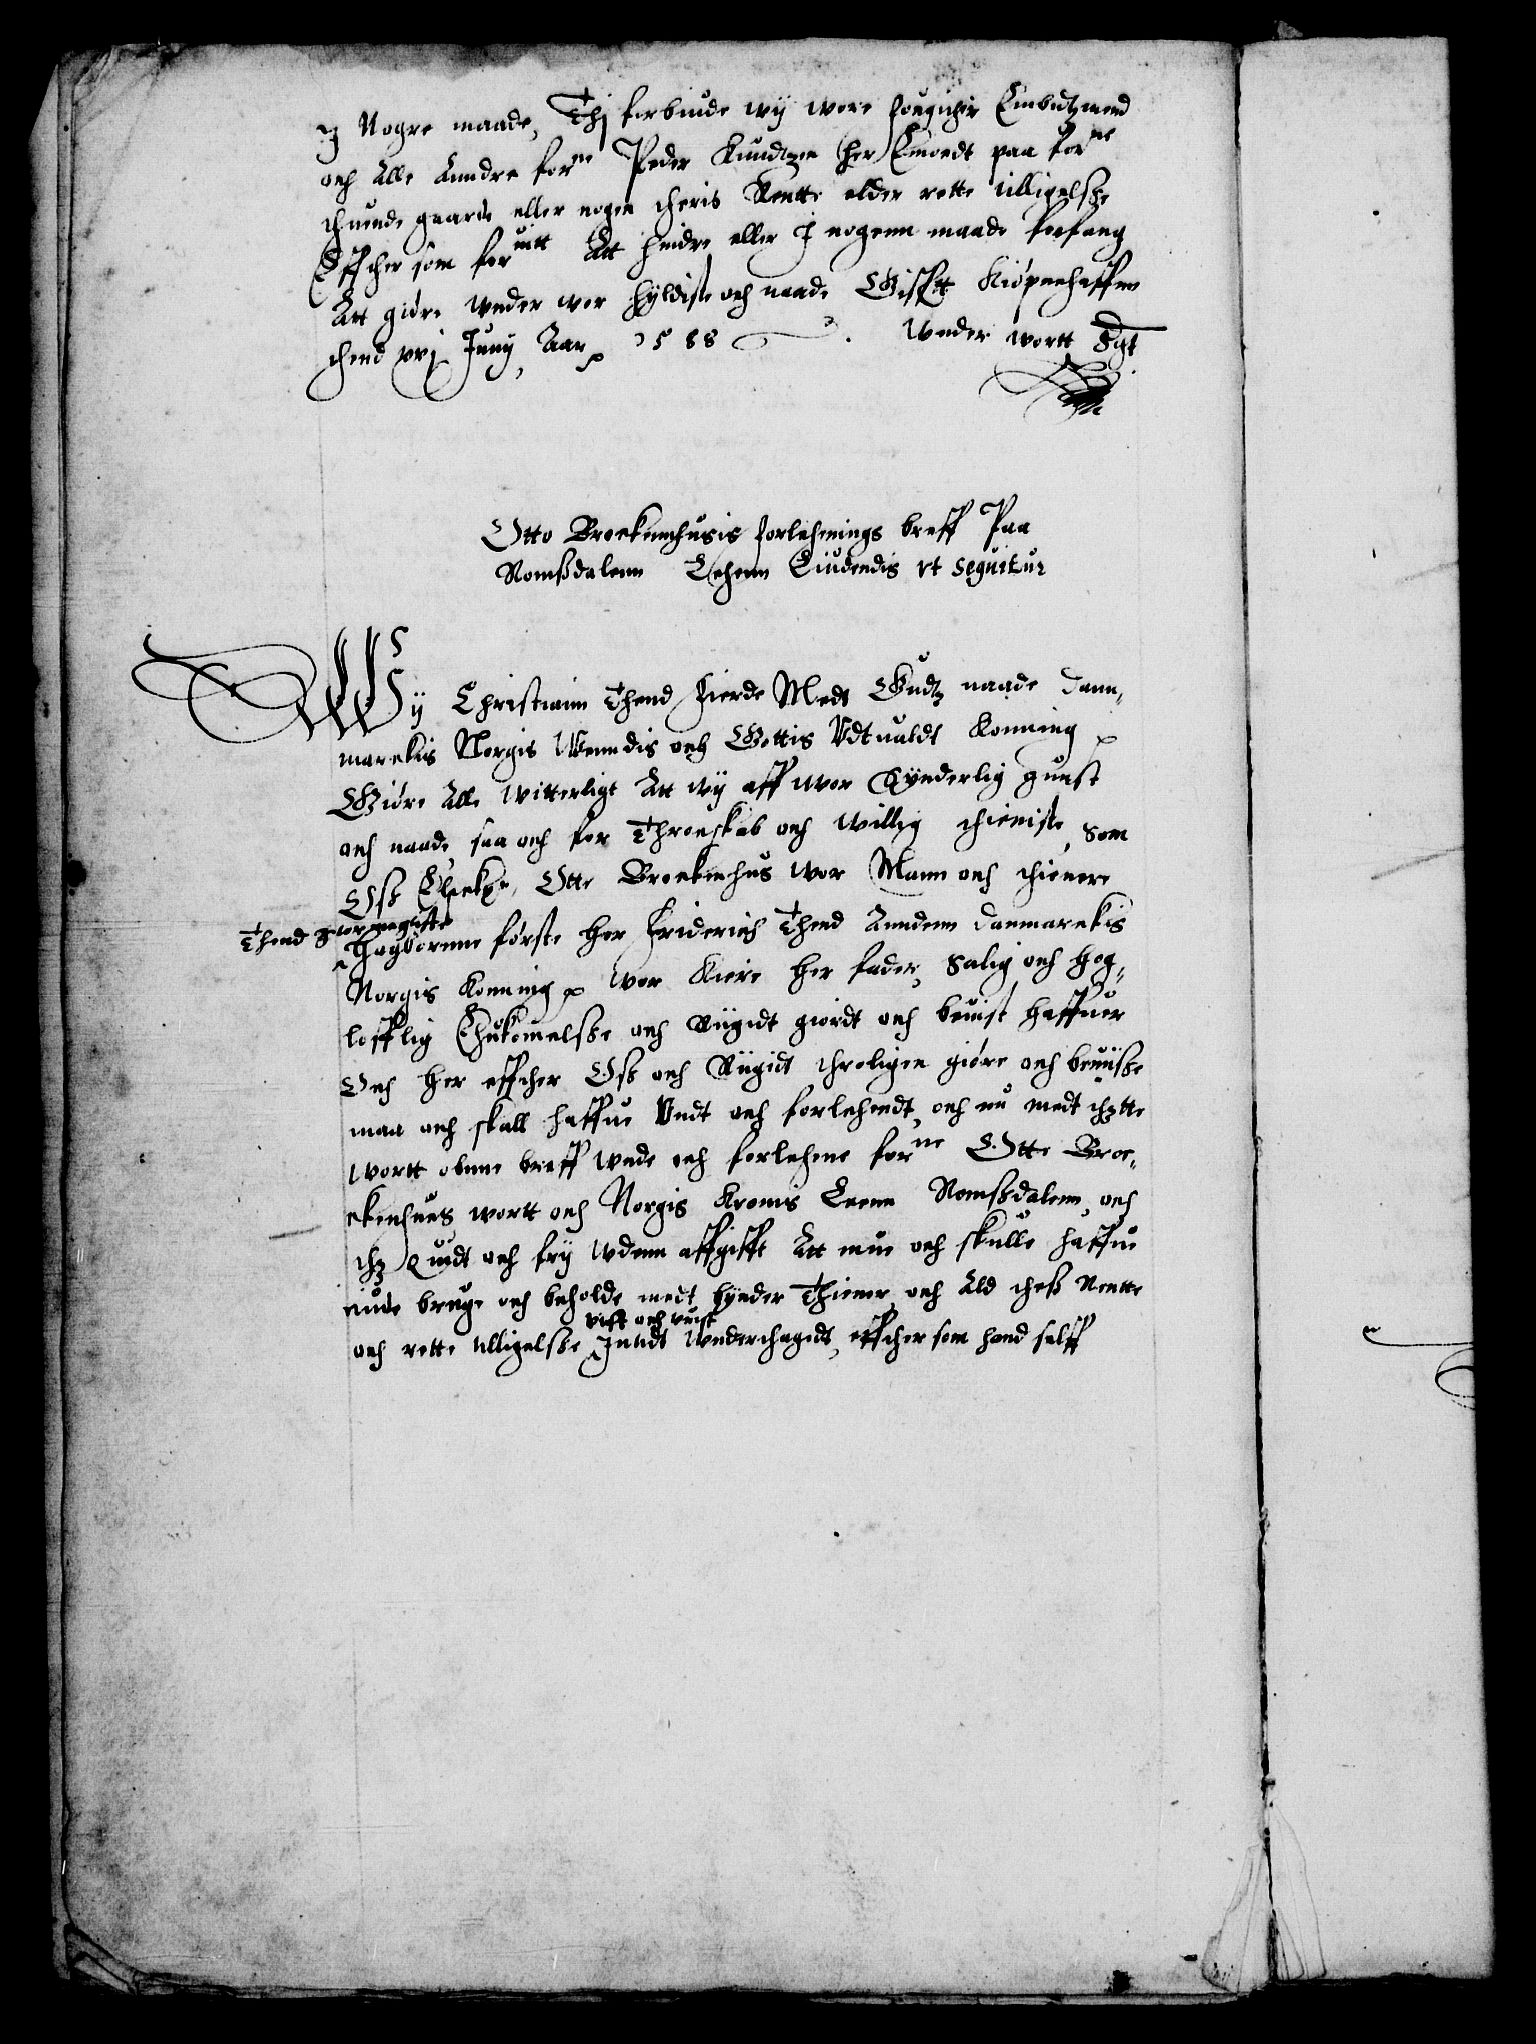 J Nogre maade, Thj forbiude wij wore fougither Embitzmend
och Alle Anndre for^ne Peder Knudtzen her Emoedt paa for^ne
thuende gaarde eller nogen theris Rentte eller rette tilligelsze
Effther som for^uitt Att hindre eller J nogenn maade forfang
Att giøre Wnder wor Hyldiste och naade Gifftt Kiøpnehaffnn
thend xxj Junij, Aar p 1588 Wnder wortt Sgt

Otto Brockennhusis forlehnings breff Paa
Romszdalenn Lehenn Liudendis vt sequitur

Wij Christiann Thend Fierde Medt Gudtz naade Dann„
marckis Norgis Wenndis och Gottis Vdtualdt Konning p
Giøre Alle Witterligt Att wij aff wor Synderlig gunst
och naade, saa och for Throeskab och Willig thieniste, Som
Osz Elsk^e, Otte Brockenhus wor Mann och thienere
Thend Stormegtiste
Høgbornne første Her Friderich Thend Anndenn Danmarckis
Norgis Konning p Wor Kiere Her fader, Salig och Høg„
lofflig Ehukomelsze och Riigidt giordt och beuist haffuer
Och her effther Osz och Riigidt throligen giøre och beuisze
maa och skall haffue Vndt och forlehendt, och nu medt thette
Wortt obnne breff Wnde och forlehene for^ne Otte Broc„
ckenhues wortt och Norgis Kronis Leenn Romszdalenn, och
thz Quidt och fry Wdenn affgifft Att mue och skulle haffue
niude bruge och beholde medt bynder Thiener, och Ald thesz Rentte
vist och vuist
och rette tilligelsze Jnttdt Wnderthagidt, effther som hand selff